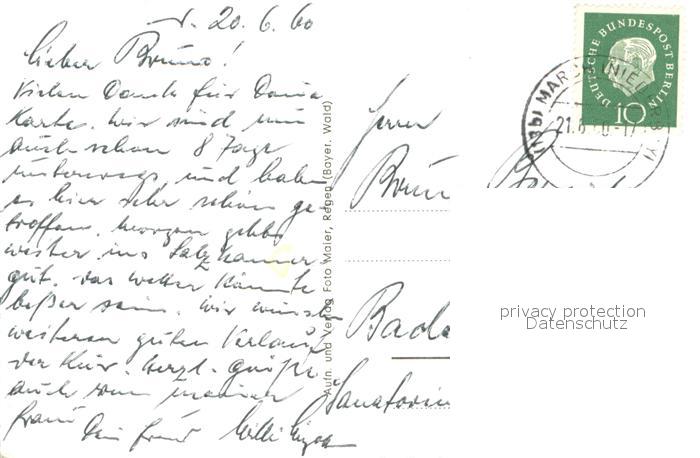 20.6.60
lieber Bruno!
Vielen Dank für Deine
Karte. Wir sind nun
auch schon 8 Tage
unterwegs und haben
es hier sehr schön ge-
troffen. morgen gehts
weiter ins Salzkammer-
gut. das wetter könnte
beßer sein. wir wünsch
weiteren guten Verlauf
der Kur. herzl. Grüße
auch von meiner
Frau
Dein Freund Willi
Aufn. und Verlag Foto Maier, Regen (Bayer. Wald)
Herrn
Brun
Bade
Sanatorium
DEUTSCHE BUNDESPOST BERLIN
10
21.6.60-17
privacy protection
Datenschutz